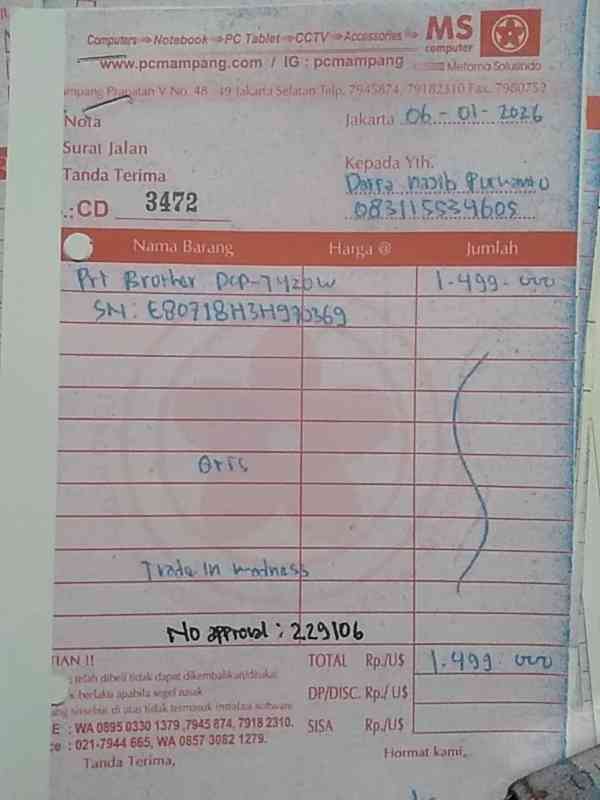 Computers ➔ Notebook ➔ PC Tablet ➔ CCTV ➔ Accessories ➔
MS
computer
www.pcmampang.com / IG : pcmampang
Metama Solusindo
mpang Prapatan V No. 48 - 49 Jakarta Selatan Telp. 7945874, 79182310 Fax. 7980752
Nota
Jakarta 06-01-2026
Surat Jalan
Kepada Yth.
Tanda Terima
Daffa Purwanto
.:CD 3472
083115539605
Nama Barang Harga @ Jumlah
Prt Brother DCP-7420W 1.499.000
SN: E80718H3H970369
Trade In madness
No approval : 229106
TIAN !!
TOTAL Rp./U$ 1.499.000
telah dibeli tidak dapat dikembalikan/ditukar
DP/DISC. Rp./U$
berlaku apabila segel rusak
ng tersebut di atas tidak termasuk instalasi software
E : WA 0895 0330 1379 ,7945 874, 7918 2310.
SISA Rp./U$
ce : 021-7944 665, WA 0857 3082 1279.
Tanda Terima,
Hormat kami,